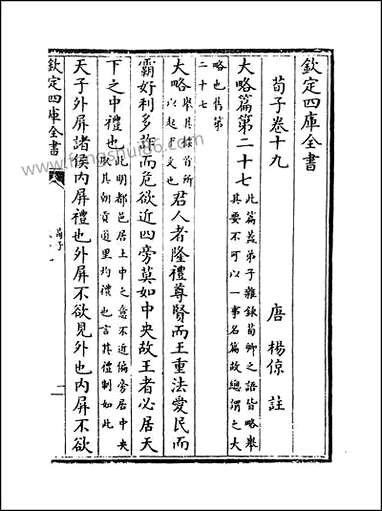 欽定四庫全書
荀子卷十九
唐 楊倞 註
大略篇第二十七此篇蓋弟子雜錄荀卿之語皆略舉其要不可以一事名篇故總謂之大
略也舊第二十七
大略舉其標首所以起下文也君人者隆禮尊賢而王重法愛民而
霸好利多詐而危欲近四旁莫如中央故王者必居天
下之中禮也此明都邑居土中之意不近偏旁居中央取其朝貢道里均禮也言其禮制如此
天子外屏諸侯内屏禮也外屏不欲見外也内屏不欲
欽定四庫全書
荀子
一